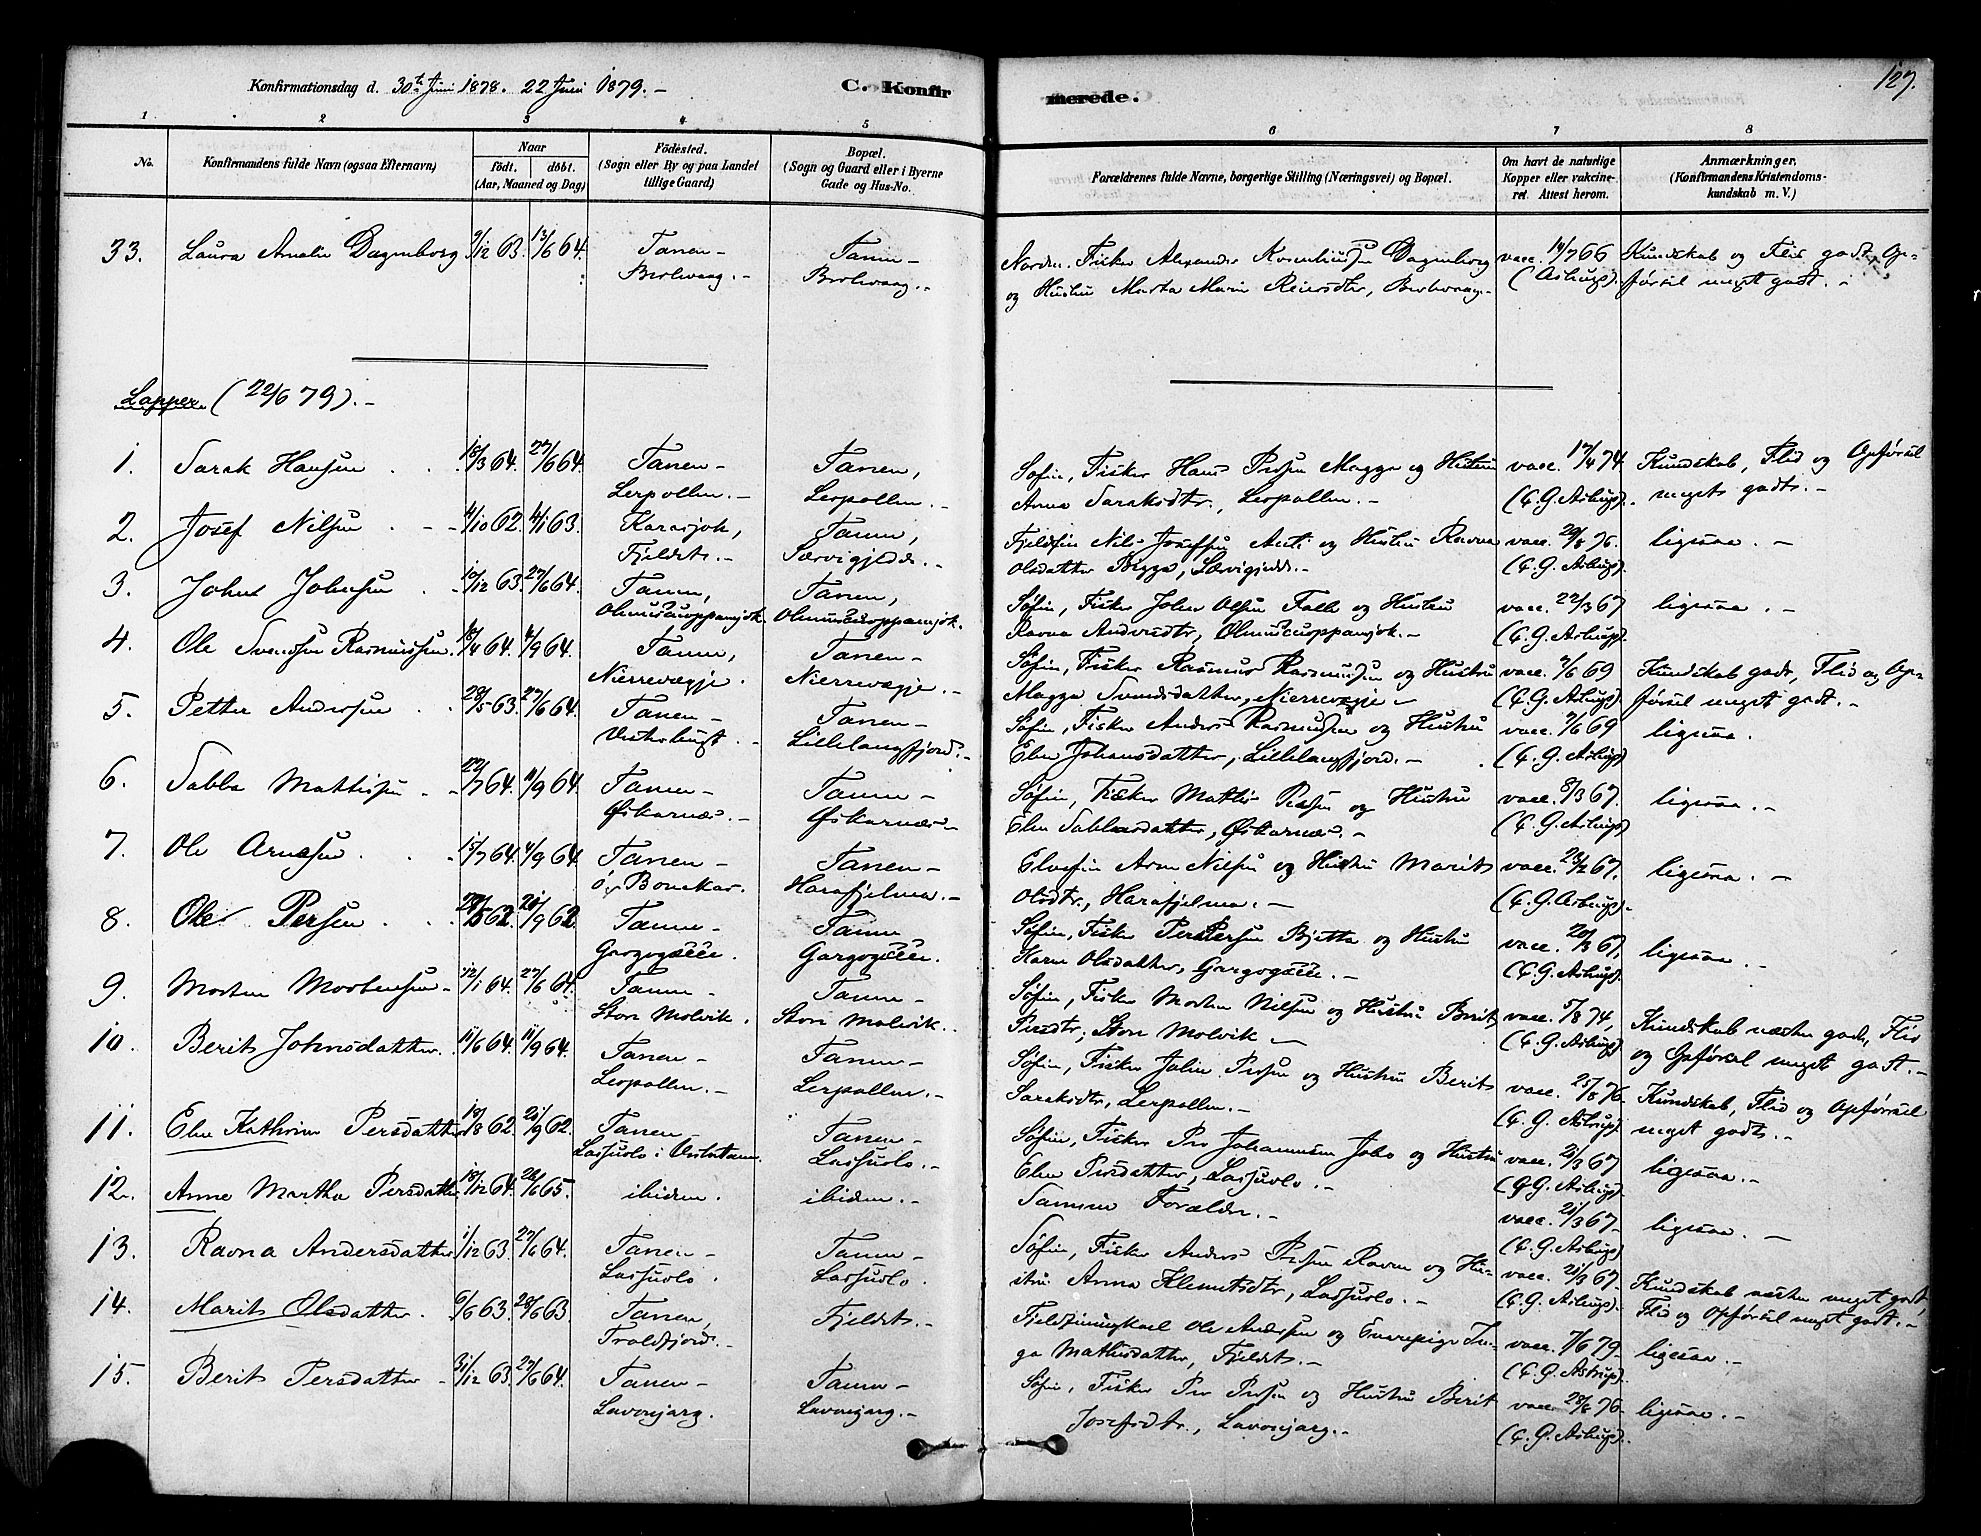 Konfirmationsdag d. 30te Juni 1878. 22 Juni 1879. –
C. Konfir
merede.
127.
1 2 3 4 5 6 7 8
No.
Konfirmandens fulde Navn (ogsaa Efternavn)
Naar
födt. döbt.
(Aar, Maaned og Dag)
Födested.
(Sogn eller By og paa Landet
tillige Gaard)
Bopæl.
(Sogn og Gaard eller i Byerne
Gade og Hus-No.
Forældrenes fulde Navne, borgerlige Stilling (Næringsvei) og Bopæl.
Om havt de naturlige
Kopper eller vakcine-
ret. Attest herom.
Anmærkninger,
(Konfirmandens Kristendoms-
kundskab m. V.)
33. Laura Amalie Dagenborg 9/12 63. 13/6 64. Tanen– Tanen– Nordm. Fisker Alexander Dagenborg vacc. 14/7 66 Kundskab og Flid godt, Op-
Berlevaag. – Berlevaag. – og Hustru Marta Marie Reiersdtr, Berlevaag. – (Astrup). førsel meget godt. –
Lapper (22/6 79). –
1. Sarak Hansen 18/3 64. 27/6 64. Tanen– Tanen, Søfin, Fisker Hans Persen Magga og Hustru vacc. 17/4 74. Kundskab, Flid og Opførsel
Lerpollen. – Lerpollen. – Anna Saraksdtr., Lerpollen. – (C. G. Astrup). meget godt. –
2. Josef Nilsen 4/10 62. 4/1 63. Karasjok, Tanen, Fjeldfin Nils Josefsen Anti og Hustru Ravna vacc. 29/8 76. ligesaa. –
Fjeldet. – Olsdatter Bigga, (C. G. Astrup).
3. Johns Johnsen 10/12 63. 27/6 64. Tanen, Tanen, Søfin, Fisker John Olsen Falle og Hustru vacc. 22/3 67 ligesaa. –
Ravna Andersdtr, (C. G. Astrup).
4. Ole Svendsen Rasmussen. 18/4 64. 4/9 64. Tanen, Tanen– Søfin, Fisker Rasmus Rasmussen og Hustru vacc. 7/6 69 Kundskab godt, Flid og Op-
Nierrevægje. Nierrevægje. – Magga Svendsdatter, Nierrevægje – (C. G. Astrup). førsel meget godt. –
5. Petter Andersen 28/5 63. 27/6 64. Tanen– Tanen– Søfin, Fisker Anders Rasmussen og Hustru vacc. 7/6 69 ligesaa.
Vesterbugt. – Lillelangfjord. – Elen Johansdatter, Lillelangfjord. – (C. G. Astrup)
6. Sabba Mattisen 22/7 64. 11/9 64. Tanen– Tanen– Søfin, Fisker Mattis Persen og Hustru vacc. 8/3 67. ligesaa. –
Øskarnæs. – Øskarnæs – Elen Sabbasdatter, Øskarnæs. – (C. G. Astrup)
7. Ole Arnesen 15/7 64. 4/9 64. Tanen– Tanen– Elvefin Arne Nilsen og Hustru Marit vacc. 28/2 67. ligesaa. –
Ø. Bonakas. Harafjelma. – Olsdtr., Harafjelma. – (C. G. Astrup). –
8. Ole Persen 62. 9 62 Tanen– Tanen Søfin, Fisker Per Persen Bjetta og Hustru vacc. 20/3 67, ligesaa. –
Gargogæcce. Gargogæcce. Karen Olsdatter, Gargogæcce. – (C. G. Astrup).
9. Morten Mortensen – 12/1 64. 27/6 64. Tanen– Tanen– Søfin, Fisker Morten Nilsen og Hustru Berit vacc. 5/8 74, Kundskab næsten godt, Flid
Store Molvik. Store Molvik. Persdtr, Store Molvik – (C. G. Astrup) og Opførsel meget godt. –
10. Berit Johnsdatter. 11/6 64. 11/9 64. Tanen– Tanen– Søfin, Fisker John Persen og Hustru Berit vacc. 25/8 76. Kundskab, Flid og Opførsel
Lerpollen. – Lerpollen. – Saraksdtr, Lerpollen. – (C. G. Astrup) meget godt. –
11. Elen Kathrine Persdatter 19/8 62. 21/9 62. Tanen Tanen– Søfin, Fisker Per Johannesen Jobo og Hustru vacc. 21/3 67 ligesaa. –
Lassuolo i Østertanen. Lassuolo. – Elen Persdatter, Lassuolo. – (C. G. Astrup).
12. Anne Martha Persdatter 18/12 64. 26/6 65. ibidem. ibidem. – Samme Forældre. – vacc. 21/3 67. ligesaa. –
(C. G. Astrup)
13. Ravna Andersdatter 1/12 63. 27/6 64. Tanen– Tanen– Søfin, Fisker Anders Persen Ravna og Hu- vacc. 21/3 67. Kundskab næsten meget godt,
Lassuolo. Lassuolo. stru Anna Klemetsdtr, Lassuolo. – (C. G. Astrup). Flid og Opførsel meget godt. –
14. Marit Olsdatter. 6/6 63. 28/6 63. Tanen, Fjeldet. – Fjeldfinungkarl Ole Andersen og Enkepige In- vacc. 7/6 79– ligesaa. –
Troldfjord. – ga Mathisdatter, Fjeldet. – (C. G. Astrup).
15. Berit Persdatter – 31/12 63. 27/6 64. Tanen– Tanen– Søfin, Fisker Per Persen og Hustru Berit vacc. 28/8 76– ligesaa. –
Lavonjarg. Lavonjarg. – Josefsdtr., Lavonjarg. – (C. G. Astrup).